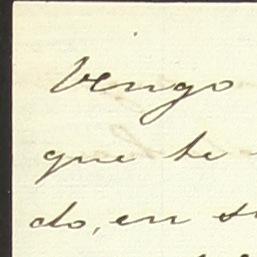 Vengo
que te
do, en